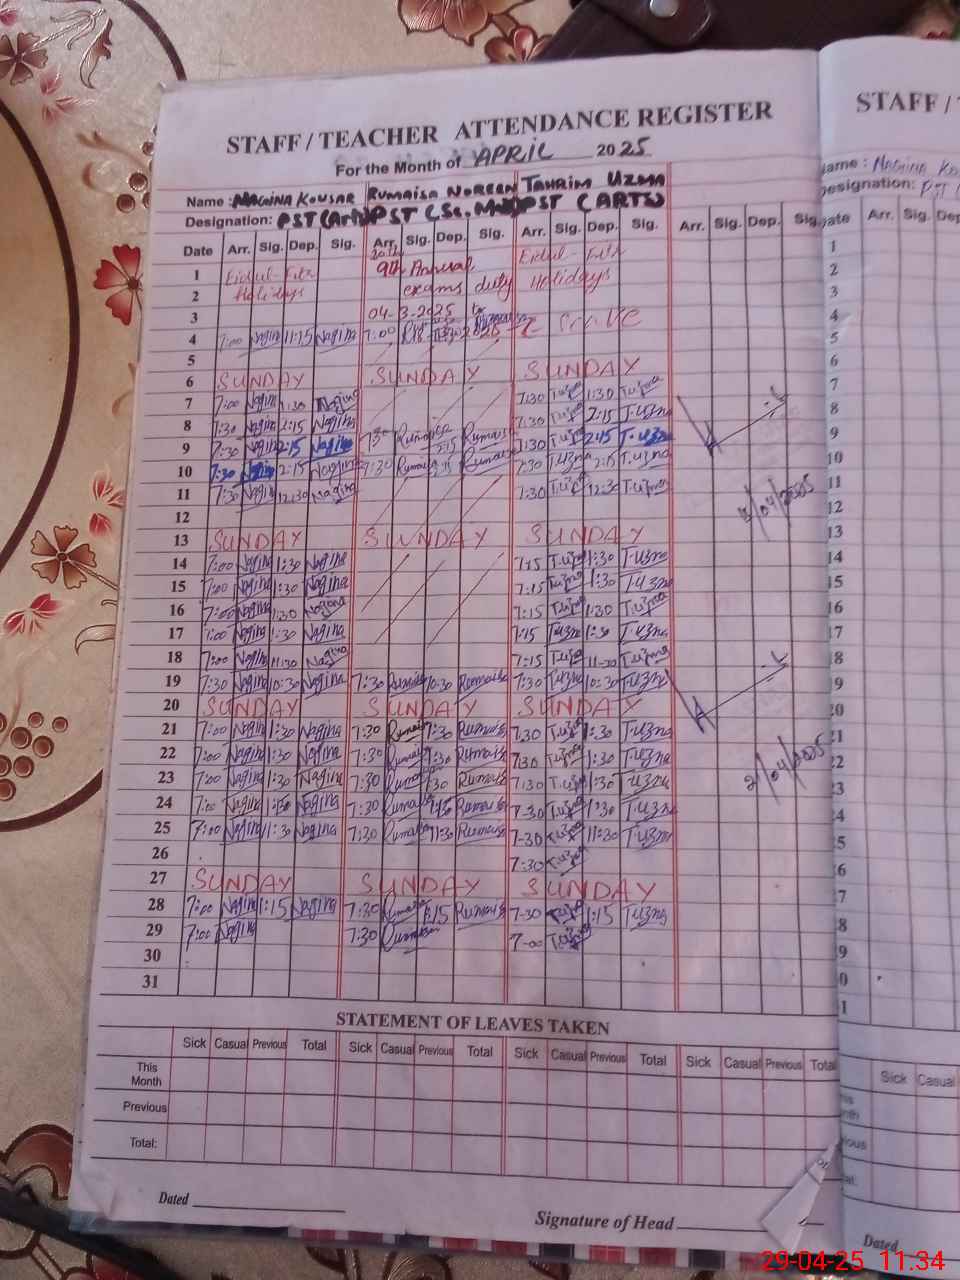 STAFF / TEACHER ATTENDANCE REGISTER
For the Month of APRIL 2025
Name : NAGINA KOUSAR RUMAISA NOREEN TAHRIM UZMA
Designation: PST (Arts) PST (Sc. PST (ARTS)
Date Arr. Sig. Dep. Sig. Arr. Sig. Dep. Sig. Arr. Sig. Dep. Sig. Arr. Sig. Dep. Sig.
1 Eidul-Fitr 9th Annual Eidul-Fitr
2 Holidays exams duty Holidays
3 04-3-2025 to
4 7:00 Nagina 11:15 Nagina 7:00
5
6 SUNDAY SUNDAY SUNDAY
7 7:00 Nagina 1:30 Nagina 7:30 T.uzma 1:30 T.uzma
8 7:30 Nagina 2:15 Nagina 7:30 T.uzma 2:15 T.uzma
9 7:30 Nagina 2:15 Nagina 7:30 Rumaisa 2:15 Rumaisa 7:30 T.uzma 2:15 T.uzma
10 7:30 Nagina 2:15 Nagina 7:30 Rumaisa 2:15 Rumaisa 7:30 T.uzma 2:15 T.uzma
11 7:30 Nagina 12:30 Nagina 7:30 T.uzma 12:30 T.uzma
12
13 SUNDAY SUNDAY SUNDAY
14 7:00 Nagina 1:30 Nagina 7:15 T.uzma 1:30 T.uzma
15 7:00 Nagina 1:30 Nagina 7:15 T.uzma 1:30 T.uzma
16 7:00 Nagina 1:30 Nagina 7:15 T.uzma 1:30 T.uzma
17 7:00 Nagina 1:30 Nagina 7:15 T.uzma 1:30 T.uzma
18 7:00 Nagina 11:30 Nagina 7:15 T.uzma 11-30 T.uzma
19 7:30 Nagina 10:30 Nagina 7:30 Rumaisa 10:30 Rumaisa 7:30 T.uzma 10:30 T.uzma
20 SUNDAY SUNDAY SUNDAY
21 7:00 Nagina 1:30 Nagina 7:30 Rumaisa 1:30 Rumaisa 7:30 T.uzma 1:30 T.uzma
22 7:00 Nagina 1:30 Nagina 7:30 Rumaisa 1:30 Rumaisa 7:30 T.uzma 1:30 T.uzma
23 7:00 Nagina 1:30 Nagina 7:30 Rumaisa 1:30 Rumaisa 7:30 T.uzma 1:30 T.uzma
24 7:00 Nagina 1:30 Nagina 7:30 Rumaisa 1:30 Rumaisa 7-30 T.uzma 1:30 T.uzma
25 7:00 Nagina 11:30 Nagina 7:30 Rumaisa 11:30 Rumaisa 7-30 T.uzma 11:30 T.uzma
26 7:30 T.uzma
27 SUNDAY SUNDAY SUNDAY
28 7:00 Nagina 1:15 Nagina 7:30 Rumaisa 1:15 Rumaisa 7-30 T.uzma 1:15 T.uzma
29 7:00 Nagina 7:30 Rumaisa 7-00 T.uzma
30
31
STATEMENT OF LEAVES TAKEN
Sick Casual Previous Total Sick Casual Previous Total Sick Casual Previous Total Sick Casual Previous Total
This
Month
Previous
Total:
Dated
Signature of Head
STAFF / T
Name : NAGINA KO
Designation: PST
Date Arr. Sig. Dep.
1
2
3
4
5
6
7
8
9
10
11
12
13
14
15
16
17
18
19
20
21
22
23
24
25
26
27
28
29
30
31
Sick Casual
Dated
29-04-25 11.34